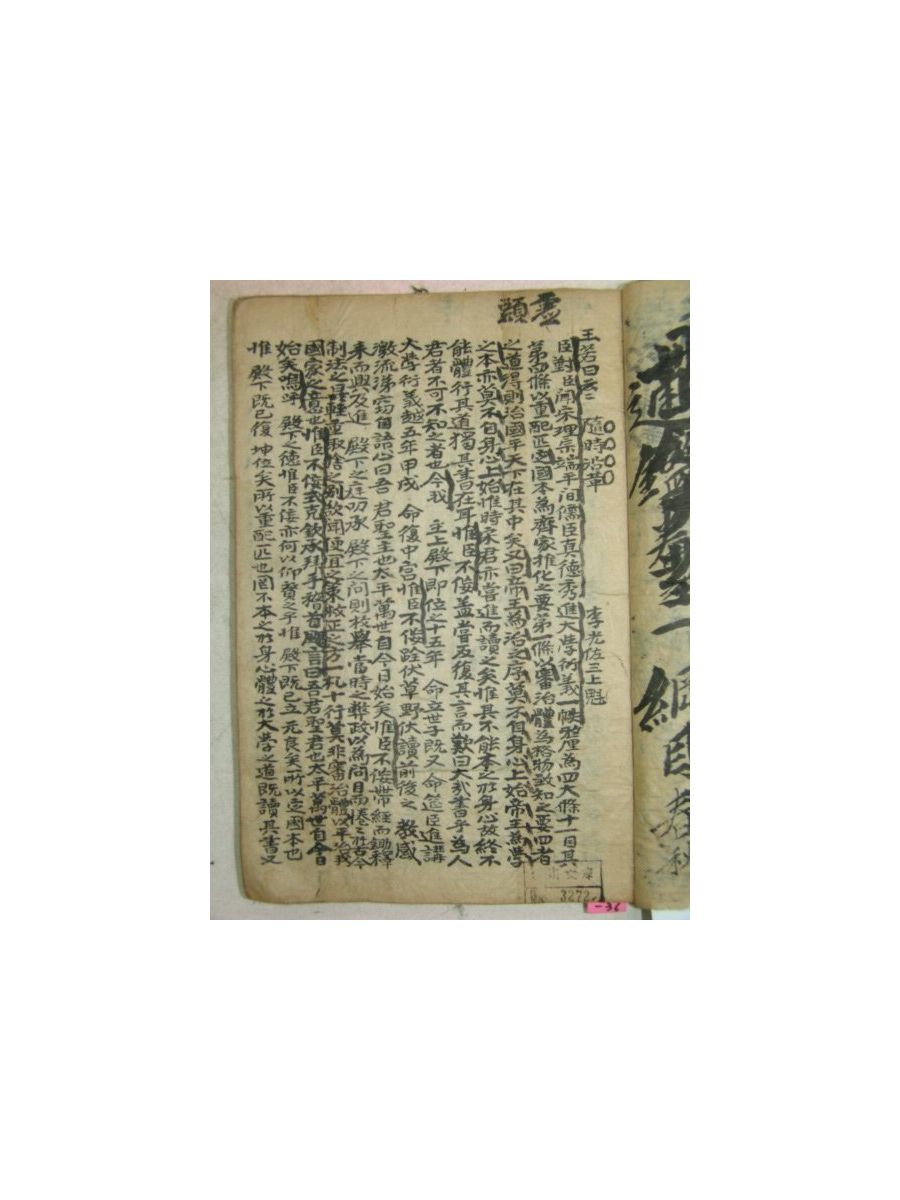 王若曰云云 隨時沿革 李光佐三上魁
臣對臣聞宋理宗端平間儒臣真德秀進大學衍義一帙釐為四大條十一目其
第四條以重配匹定國本為齊家推化之要第一條以審治體為格物致知之要四者
之道得則治國平天下在其中矣又曰帝王為治之序莫不自身心上始帝王為學
之本亦莫不自身心上始惟時宋君亦嘗進而讀之矣惟其不能本之於身心故終不
能體行其道獨其書在耳惟臣不佞盖嘗反復其言而歎曰大哉書乎為人
君者不可不知之者也今我 主上殿下即位之十五年 命立世子既又命筵臣進講
大學衍義越五年甲戌 命復中宮惟臣不佞跧伏草野伏讀前後之 教感
激流涕竊自語心曰吾 君聖主也太平萬世自今日始矣惟臣不佞帶經而鋤釋
耒而興及進 殿下之庭叨承 殿下之問則枚舉當時之弊政以為問目而惓惓於古今
制法之輕重取捨之別欲聞便宜之策救正之方一札十行莫非審治體以平治我
國家之意也惟臣不佞敢克欽承拜手稽首颺言曰吾君聖君也太平萬世自今日
始矣嗚呼 殿下之德惟臣不佞亦何以仰贊之乎惟 殿下既已立 元良矣所以定國本也
惟 殿下既已復 坤位矣所以重配匹也固不本之於身心體之於大學之道既讀其書又
3272
-36